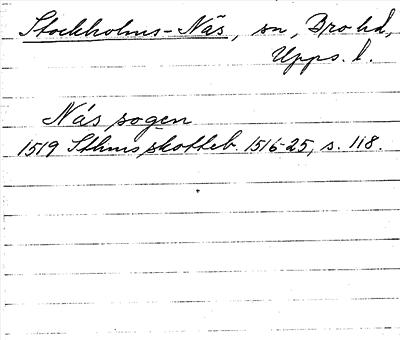 Stockholms-Näs, sn, Bro hd,
Upps. l.
Näs sogen
1519 Sthms skotteb. 1516-25, s. 118.